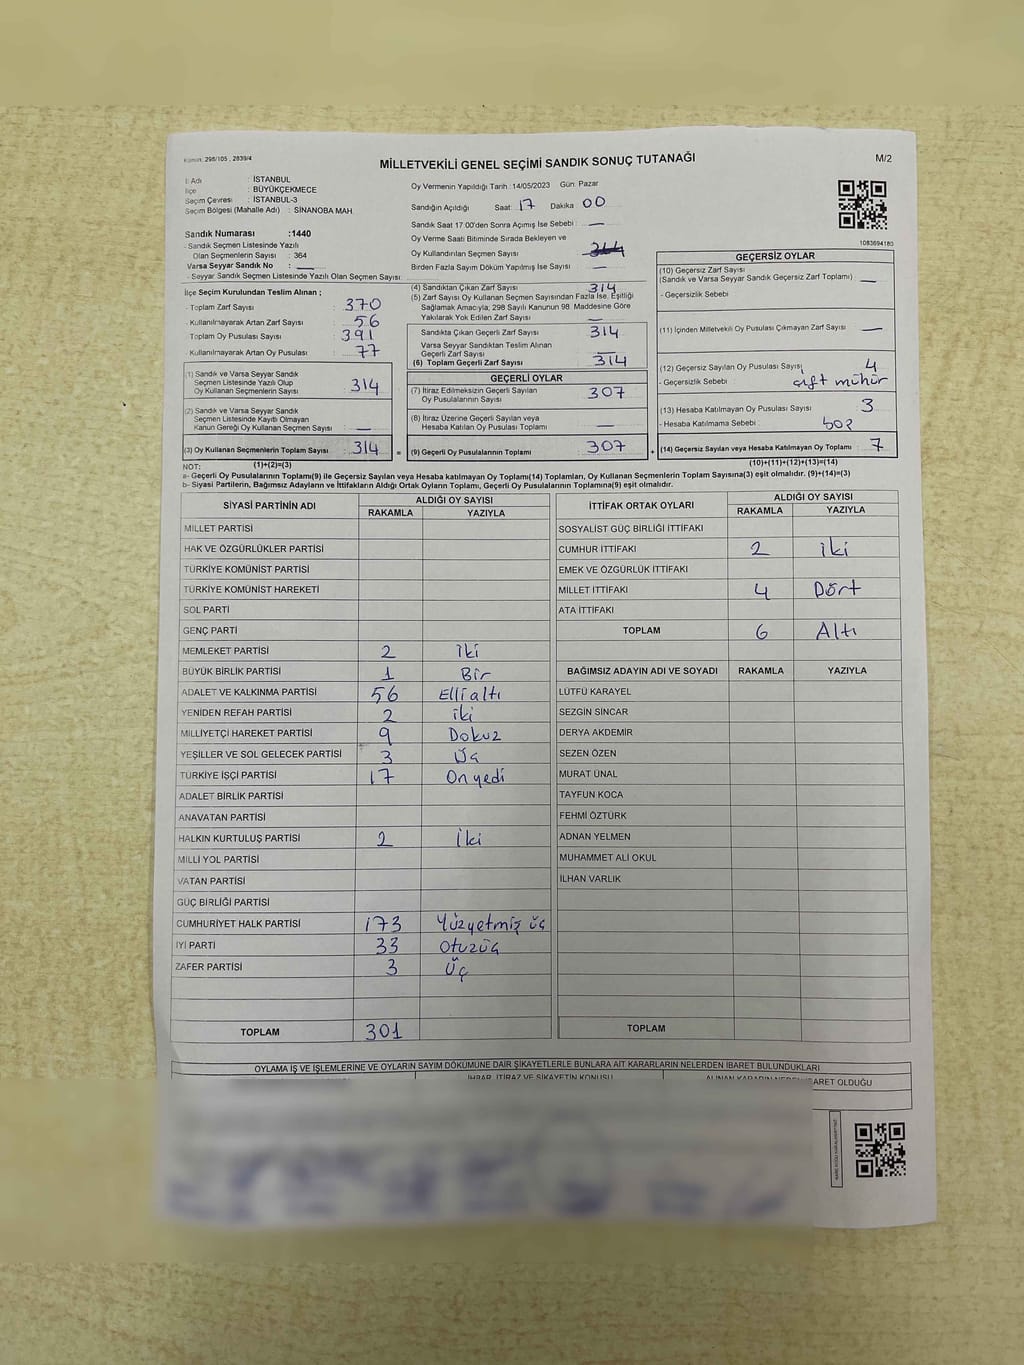 Kanun: 298/105, 2839/4
MİLLETVEKİLİ GENEL SEÇİMİ SANDIK SONUÇ TUTANAĞI
M/2
İl Adı : İSTANBUL
İlçe : BÜYÜKÇEKMECE
Seçim Çevresi : İSTANBUL-3
Seçim Bölgesi (Mahalle Adı) : SİNANOBA MAH.
Oy Vermenin Yapıldığı Tarih :14/05/2023 Gün: Pazar
Sandığın Açıldığı Saat: 17 Dakika 00
Sandık Saat 17.00'den Sonra Açımış İse Sebebi : —
Sandık Numarası :1440
- Sandık Seçmen Listesinde Yazılı
Olan Seçmenlerin Sayısı : 364
Varsa Seyyar Sandık No : —
- Seyyar Sandık Seçmen Listesinde Yazılı Olan Seçmen Sayısı:
Oy Verme Saati Bitiminde Sırada Bekleyen ve
Oy Kullandırılan Seçmen Sayısı :
Birden Fazla Sayım Döküm Yapılmış İse Sayısı : —
1083694180
İlçe Seçim Kurulundan Teslim Alınan ;
- Toplam Zarf Sayısı : 370
- Kullanılmayarak Artan Zarf Sayısı : 56
- Toplam Oy Pusulası Sayısı : 391
- Kullanılmayarak Artan Oy Pusulası : 77
(1) Sandık ve Varsa Seyyar Sandık
Seçmen Listesinde Yazılı Olup
Oy Kullanan Seçmenlerin Sayısı : 314
(2) Sandık ve Varsa Seyyar Sandık
Seçmen Listesinde Kayıtlı Olmayan
Kanun Gereği Oy Kullanan Seçmen Sayısı : —
(3) Oy Kullanan Seçmenlerin Toplam Sayısı : 314
(4) Sandıktan Çıkan Zarf Sayısı : 314
(5) Zarf Sayısı Oy Kullanan Seçmen Sayısından Fazla İse, Eşitliği
Sağlamak Amacıyla; 298 Sayılı Kanunun 98. Maddesine Göre
Yakılarak Yok Edilen Zarf Sayısı : —
Sandıkta Çıkan Geçerli Zarf Sayısı : 314
Varsa Seyyar Sandıktan Teslim Alınan
Geçerli Zarf Sayısı : —
(6) Toplam Geçerli Zarf Sayısı : 314
GEÇERLİ OYLAR
(7) İtiraz Edilmeksizin Geçerli Sayılan
Oy Pusulalarının Sayısı : 307
(8) İtiraz Üzerine Geçerli Sayılan veya
Hesaba Katılan Oy Pusulası Toplamı : —
(9) Geçerli Oy Pusulalarının Toplamı : 307
GEÇERSİZ OYLAR
(10) Geçersiz Zarf Sayısı
(Sandık ve Varsa Seyyar Sandık Geçersiz Zarf Toplamı) : —
- Geçersizlik Sebebi :
(11) İçinden Milletvekili Oy Pusulası Çıkmayan Zarf Sayısı : —
(12) Geçersiz Sayılan Oy Pusulası Sayısı : 4
- Geçersizlik Sebebi : çift mühür
(13) Hesaba Katılmayan Oy Pusulası Sayısı : 3
- Hesaba Katılmama Sebebi : boş
(14) Geçersiz Sayılan veya Hesaba Katılmayan Oy Toplamı : 7
NOT: (1)+(2)=(3) (10)+(11)+(12)+(13)=(14)
a- Geçerli Oy Pusulalarının Toplamı(9) ile Geçersiz Sayılan veya Hesaba katılmayan Oy Toplamı(14) Toplamları, Oy Kullanan Seçmenlerin Toplam Sayısına(3) eşit olmalıdır. (9)+(14)=(3)
b- Siyasi Partilerin, Bağımsız Adayların ve İttifakların Aldığı Ortak Oyların Toplamı, Geçerli Oy Pusulalarının Toplamına(9) eşit olmalıdır.
SİYASİ PARTİNİN ADI ALDIĞI OY SAYISI
RAKAMLA YAZIYLA
MİLLET PARTİSİ
HAK VE ÖZGÜRLÜKLER PARTİSİ
TÜRKİYE KOMÜNİST PARTİSİ
TÜRKİYE KOMÜNİST HAREKETİ
SOL PARTİ
GENÇ PARTİ
MEMLEKET PARTİSİ 2 İki
BÜYÜK BİRLİK PARTİSİ 1 Bir
ADALET VE KALKINMA PARTİSİ 56 Elli altı
YENİDEN REFAH PARTİSİ 2 iki
MİLLİYETÇİ HAREKET PARTİSİ 9 Dokuz
YEŞİLLER VE SOL GELECEK PARTİSİ 3 Üç
TÜRKİYE İŞÇİ PARTİSİ 17 On yedi
ADALET BİRLİK PARTİSİ
ANAVATAN PARTİSİ
HALKIN KURTULUŞ PARTİSİ 2 İki
MİLLİ YOL PARTİSİ
VATAN PARTİSİ
GÜÇ BİRLİĞİ PARTİSİ
CUMHURİYET HALK PARTİSİ 173 Yüzyetmiş üç
İYİ PARTİ 33 Otuzüç
ZAFER PARTİSİ 3 Üç
TOPLAM 301
İTTİFAK ORTAK OYLARI ALDIĞI OY SAYISI
RAKAMLA YAZIYLA
SOSYALİST GÜÇ BİRLİĞİ İTTİFAKI
CUMHUR İTTİFAKI 2 iki
EMEK VE ÖZGÜRLÜK İTTİFAKI
MİLLET İTTİFAKI 4 Dört
ATA İTTİFAKI
TOPLAM 6 Altı
BAĞIMSIZ ADAYIN ADI VE SOYADI RAKAMLA YAZIYLA
LÜTFÜ KARAYEL
SEZGİN SİNCAR
DERYA AKDEMİR
SEZEN ÖZEN
MURAT ÜNAL
TAYFUN KOCA
FEHMİ ÖZTÜRK
ADNAN YELMEN
MUHAMMET ALİ OKUL
İLHAN VARLIK
TOPLAM
OYLAMA İŞ VE İŞLEMLERİNE VE OYLARIN SAYIM DÖKÜMÜNE DAİR ŞİKAYETLERLE BUNLARA AİT KARARLARIN NELERDEN İBARET BULUNDUKLARI
İHBAR, İTİRAZ VE ŞİKAYETİN KONUSU ALINAN KARARIN NEDEN İBARET OLDUĞU